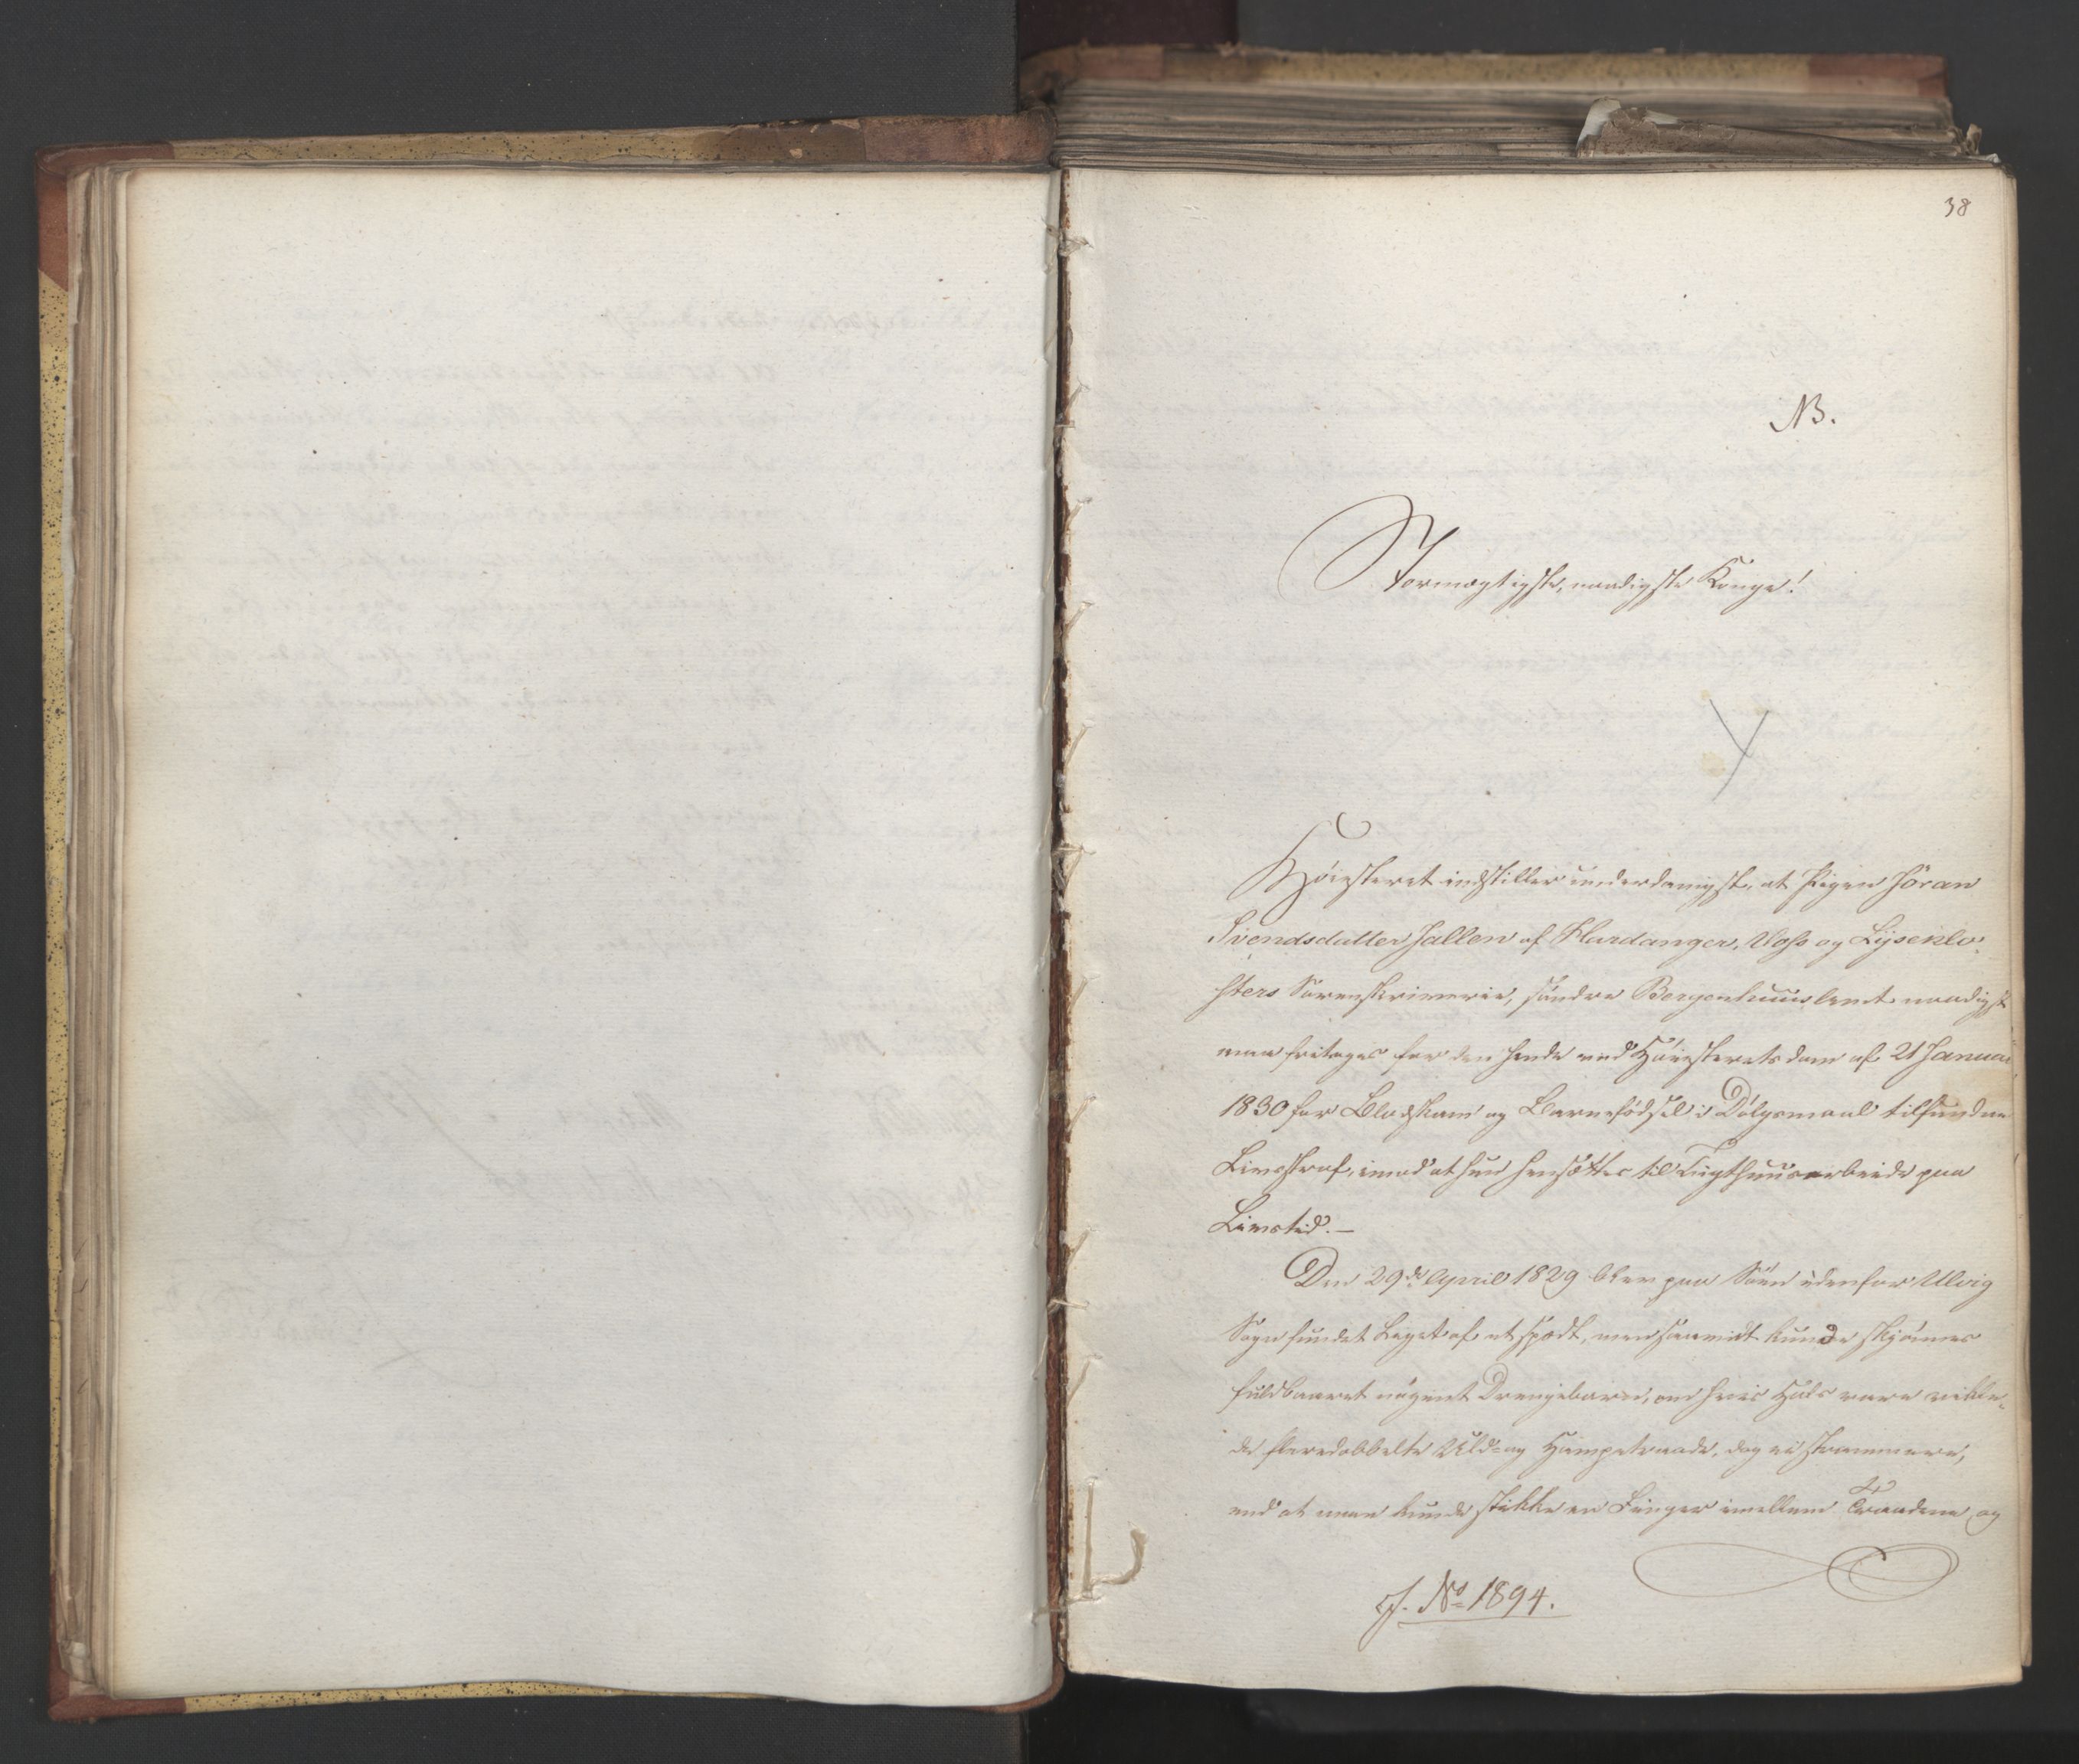 38
NB.
Stormægtigste, naadigste Konge!
Høiesteret indstiller underdanigst, at Pigen Jöran
Svendsdatter Hallen af Hardanger, Voss og Lysenklo-
sters Sorenskriverie, søndre Bergenhuus Amt naadigst
maa fritages for den hende ved Høiesterets dom af 21 Januar
1830 for Blodskam og Barnefødsel i Dølgsmaal tilfundne
Livsstraf, imod at hun hensættes til Tugthuusarbeide paa
Livstid. —
Den 29de April 1829 blev paa Søen udenfor Ulvig
Sogn fundet Liget af et spædt, men saavidt kunde skjønnes
fuldbaaret nøgent Drengebarn, om hvis Hals vare vikle-
de fleredobbelte Uld- og Hampetraade, dog ei strammere,
end at man kunde stikke en Finger imellem Traadene og
J. No 1894.